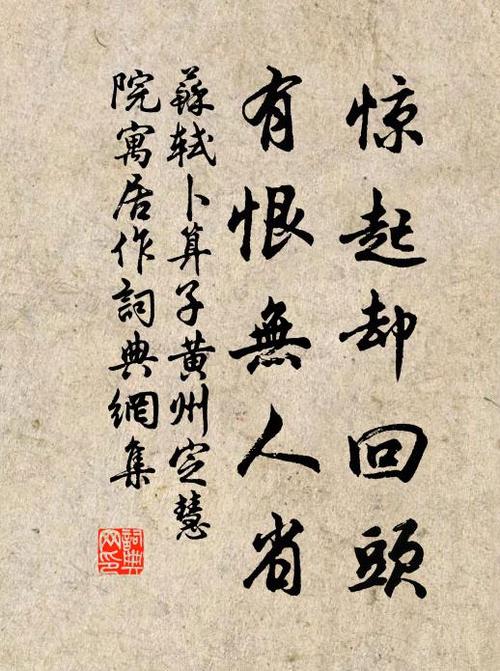 惊起却回頭
有恨無人省
蘇軾卜算子黃州定慧
院寓居作詞典網集
詞典网印